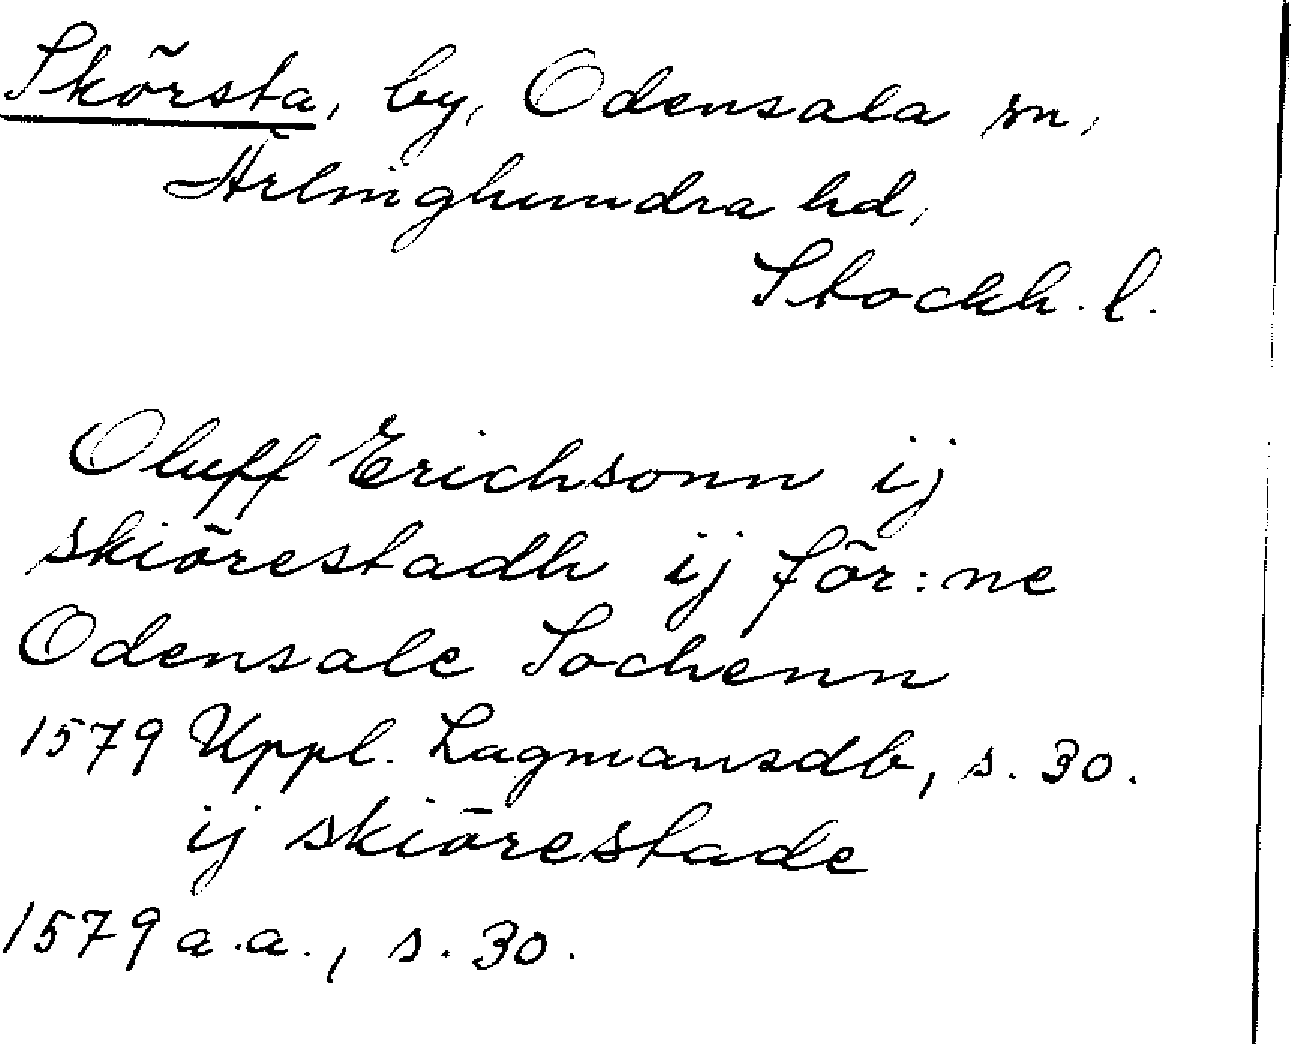 Skörsta, by, Odensala sn,
Ärlinghundra hd,
Stockh. l.
Oluff Erichsonn ij
skiörestadh ij för:ne
Odensale Sochenn
1579 Uppl. Lagmansdb, s. 30.
ij skiörestade
1579 a.a., s. 30.